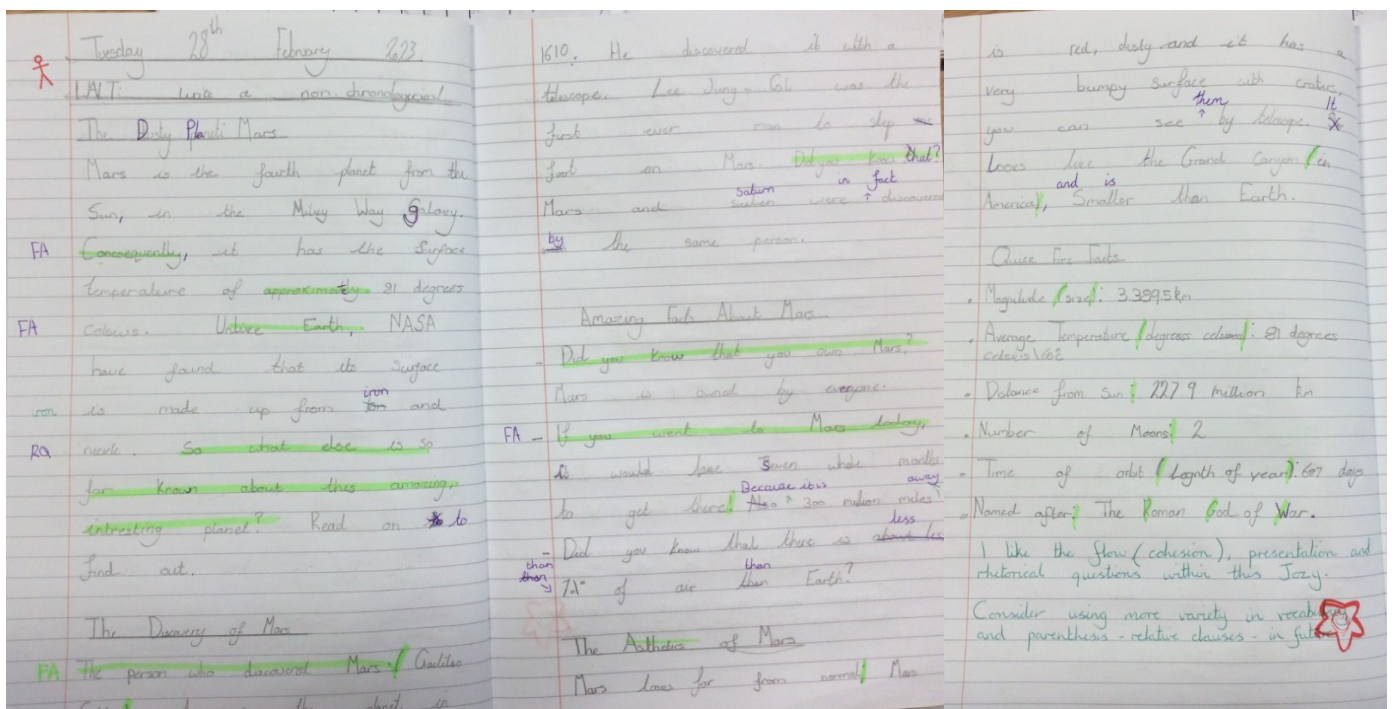 Tuesday 28th February 2023.
WALT: write a non-chronological
The Dusty Planet Mars
Mars is the fourth planet from the
Sun, in the Milky Way Galaxy.
FA Consequently, it has the surface
temperature of approximately 81 degrees
FA celcius. Unlike Earth, NASA
have found that its surface
iron
iron is made up from and
RQ nickle. So what else is so
far known about this amazing,
intresting planet? Read on to
find out.
The Discovery of Mars
FA The person who discovered Mars Galileo
the planet in
1610. He discovered it with a
telscope. Lee Jung-Gil was the
first ever man to step
foot on Mars. Did you know that?
saturn in fact
Mars and were discovered
by the same person.
Amazing Facts About Mars
- Did you know that you own Mars?
Mars is owned by everyone.
FA - If you went to Mars today,
it would take seven whole months
Because it is away
to get there! Also 300 million miles
less
- Did you know that there is about les
than than
than 1% of air then Earth?
The Asthetics of Mars
Mars looks far from normal Mars
is red, dusty and it has a
very bumpy surface with crators,
them It
you can see by telscope.
Looks like the Grand Canyon (in
and is
America), Smaller than Earth.
Quick Fire Facts
• Magnitude (size): 3.389.5km
• Average Temperature (degrees celcius): 81 degrees
celcis
• Distance from Sun: 227.9 million km
• Number of Moons: 2
• Time of orbit (legnth of year): 687 days
• Named after: The Roman God of War.
I like the flow (cohesion), presentation and
rhetorical questions within this Jozy.
Consider using more variety in vocabulary
and parenthesis - relative clauses - in future